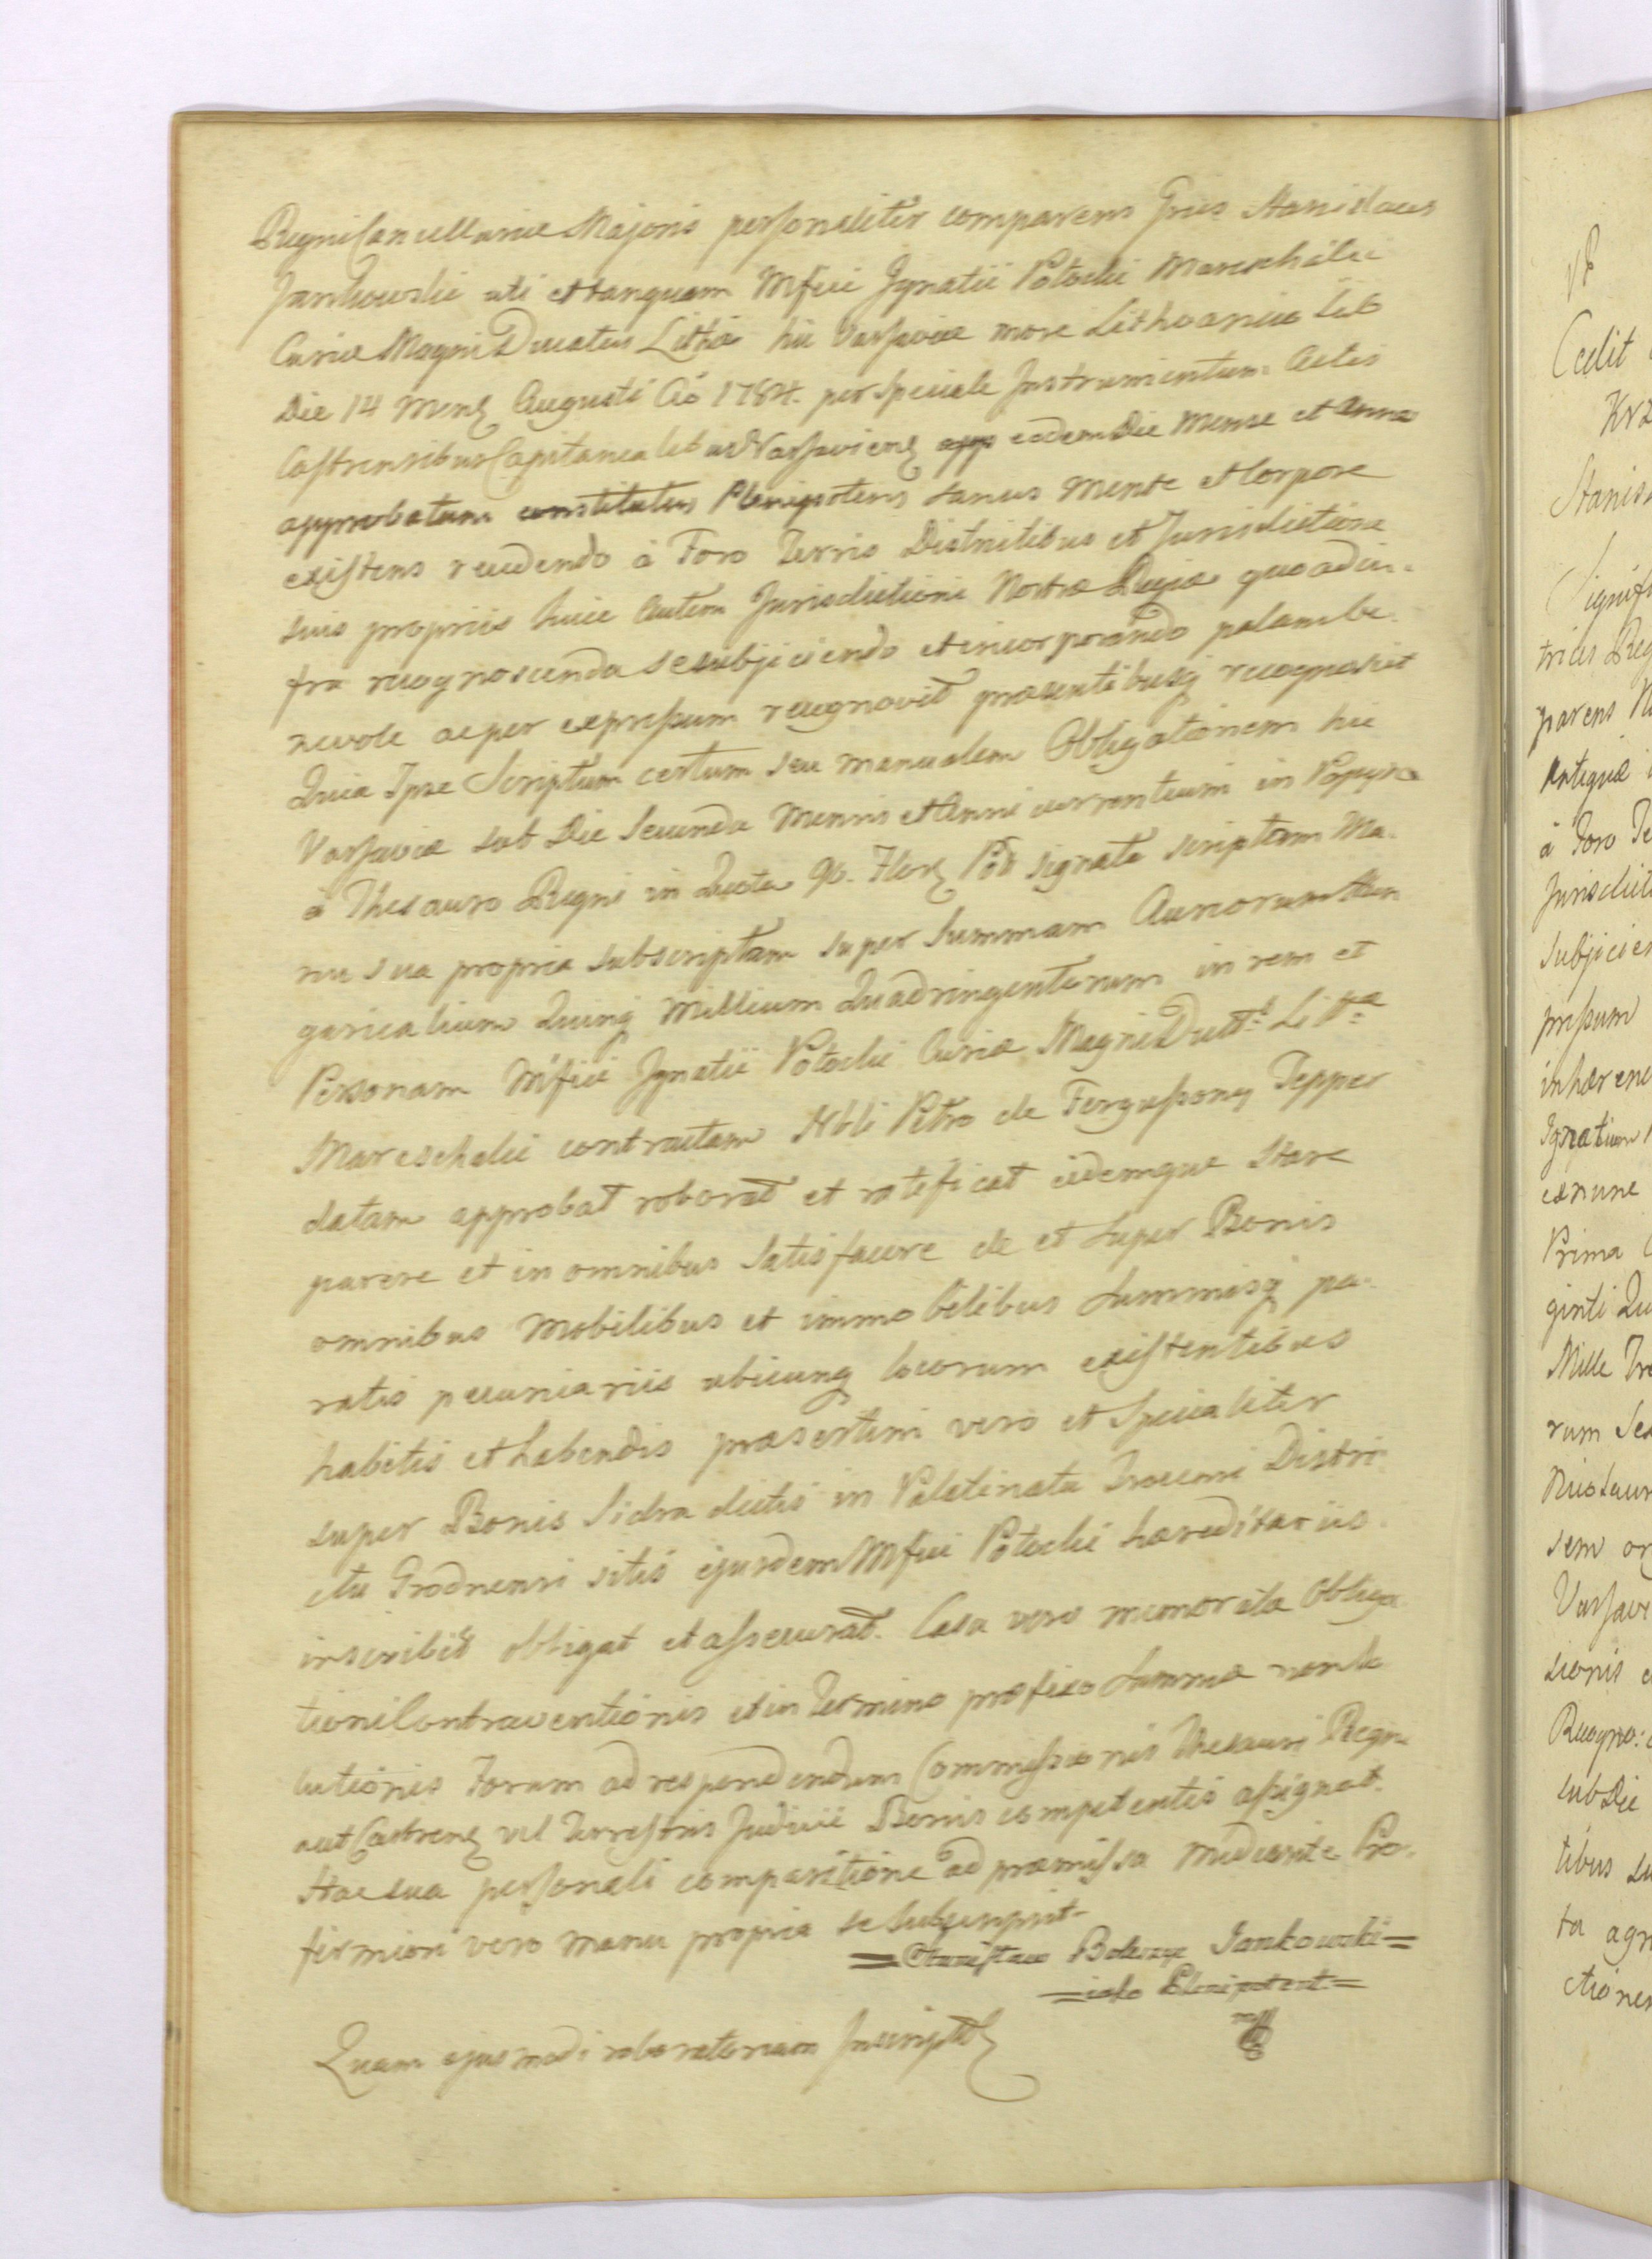 Regni Cancellariae Majoris personaliter comparens Grsus Stanislaus
Jankowski uti et tanquam Mfici Ignatii Potocki Mareschalci
Curiae Magni Ducatus Litthae hic Varsaviae more Lithvanico sub
Die 14 Mens Augusti Ao 1784. per Speciale Instrumentum Actis
Castrensibus Capitanealibus Varsaviens app eodem Die Mense et Anno
approbatum constitutus Plenipotens sanus Mente et Corpore
existens recedendo à Foro Terris Districtibus et Jurisdictione
suis propriis huic autem Jurisdictioni Nostrae Regiae quoad in-
fra recognoscenda se subjiciendo et incorporando palam be-
nevole ac per expressum recognovit praesentibusq recognoscit
Quia Ipse Scriptum certum seu manualem Obligationem hic
Varsaviae sub Die Secunda Mensis et Anni currentium in Papyro
à Thesauro Regni in Quota 90. Flor Pol signata scriptam Ma-
nu sua propria subscriptam super Summam Aureorum Hun-
garicalium Quinq Millium Quadringentorum in rem et
Personam Mfici Ignatii Potocki Curiae Magni Ducts Littae
Mareschalci contractam Nbli Petro de Fergusson Tepper
datam approbat roborat et ratificat eidemque Stare
parere et in omnibus Satisfacere de et super Bonis
omnibus Mobilibus et immobilibus Summisq pa-
ratis pecuniariis ubicunq locorum existentibus
habitis et habendis praesertim vero et Specialiter
super Bonis Sidra dictis in Palatinatu Trocensi Distri-
ctu Grodnensi sitis ejusdem Mfici Potocki haereditariis
inscribit obligat et assecurat. Casu vero memoratae Obliga
tioni Contraventionis et in Termino praefixo Summae non So
lutionis Forum ad respondendum Commissionis Thesauri Regni
aut Castrens vel Terrestris Judicii Bonis competentis assignat.
Hac sua personali comparitione ad praemissa mediante Pro-
firmiori vero manu propria se subscripsit
= Stanisław Jankowski =
= iako Plenipotent =
mp
Quam ejusmodi roboratoriam Inscript